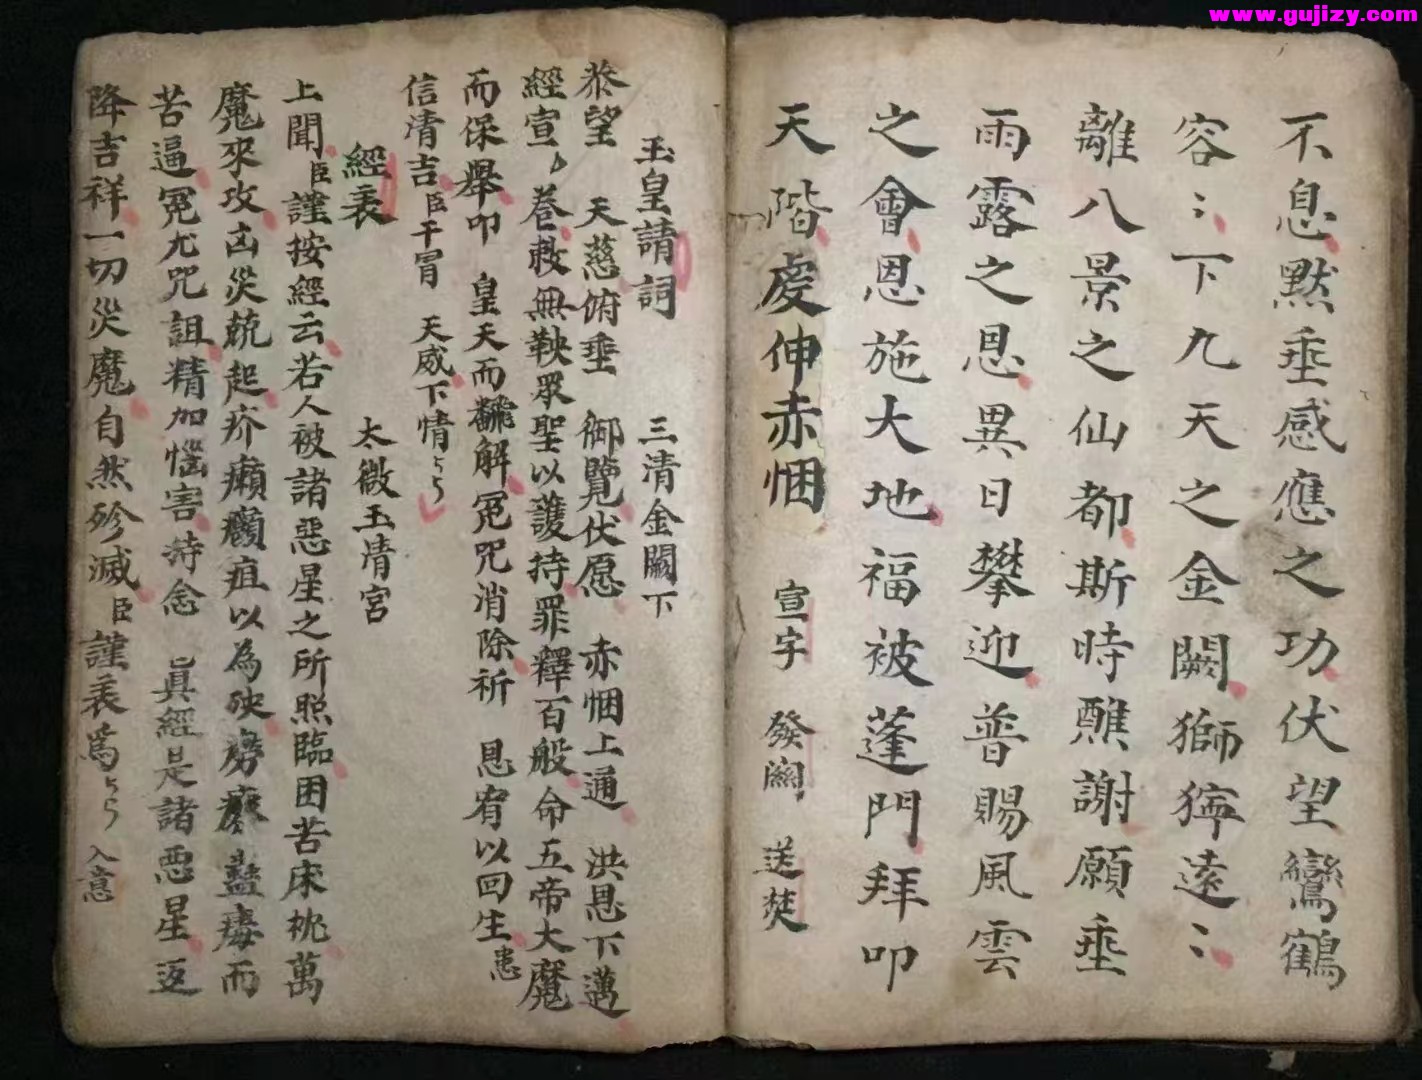 www.gujizy.com
不息默垂感應之功伏望鸞鶴
容〻下九天之金闕獅獰遠〻
離八景之仙都斯時醮謝願垂
雨露之恩異日攀迎普賜風雲
之會恩施大地福被蓬門拜叩
天階虔伸赤悃 宣字 發關 送焚
玉皇請詞 三清金闕下
叅望 天慈俯垂 御覽伏愿 赤悃上通 洪恩下邁
經宣卷救無鞅眾聖以護持罪釋百般命五帝大魔
而保舉叩 皇天而解冤咒消除祈 恩宥以回生恙
信清吉臣干冒 天威下情
經表 太微玉清宮
上聞臣謹按經云若人被諸惡星之所照臨困苦床枕萬
魔來攻凶災競起疥癩癰疽以為殃癆瘵蠱毒而
苦逼冤尤咒詛精加惱害持念 真經是諸惡星返
降吉祥一切災魔自然殄滅臣謹表為 入意